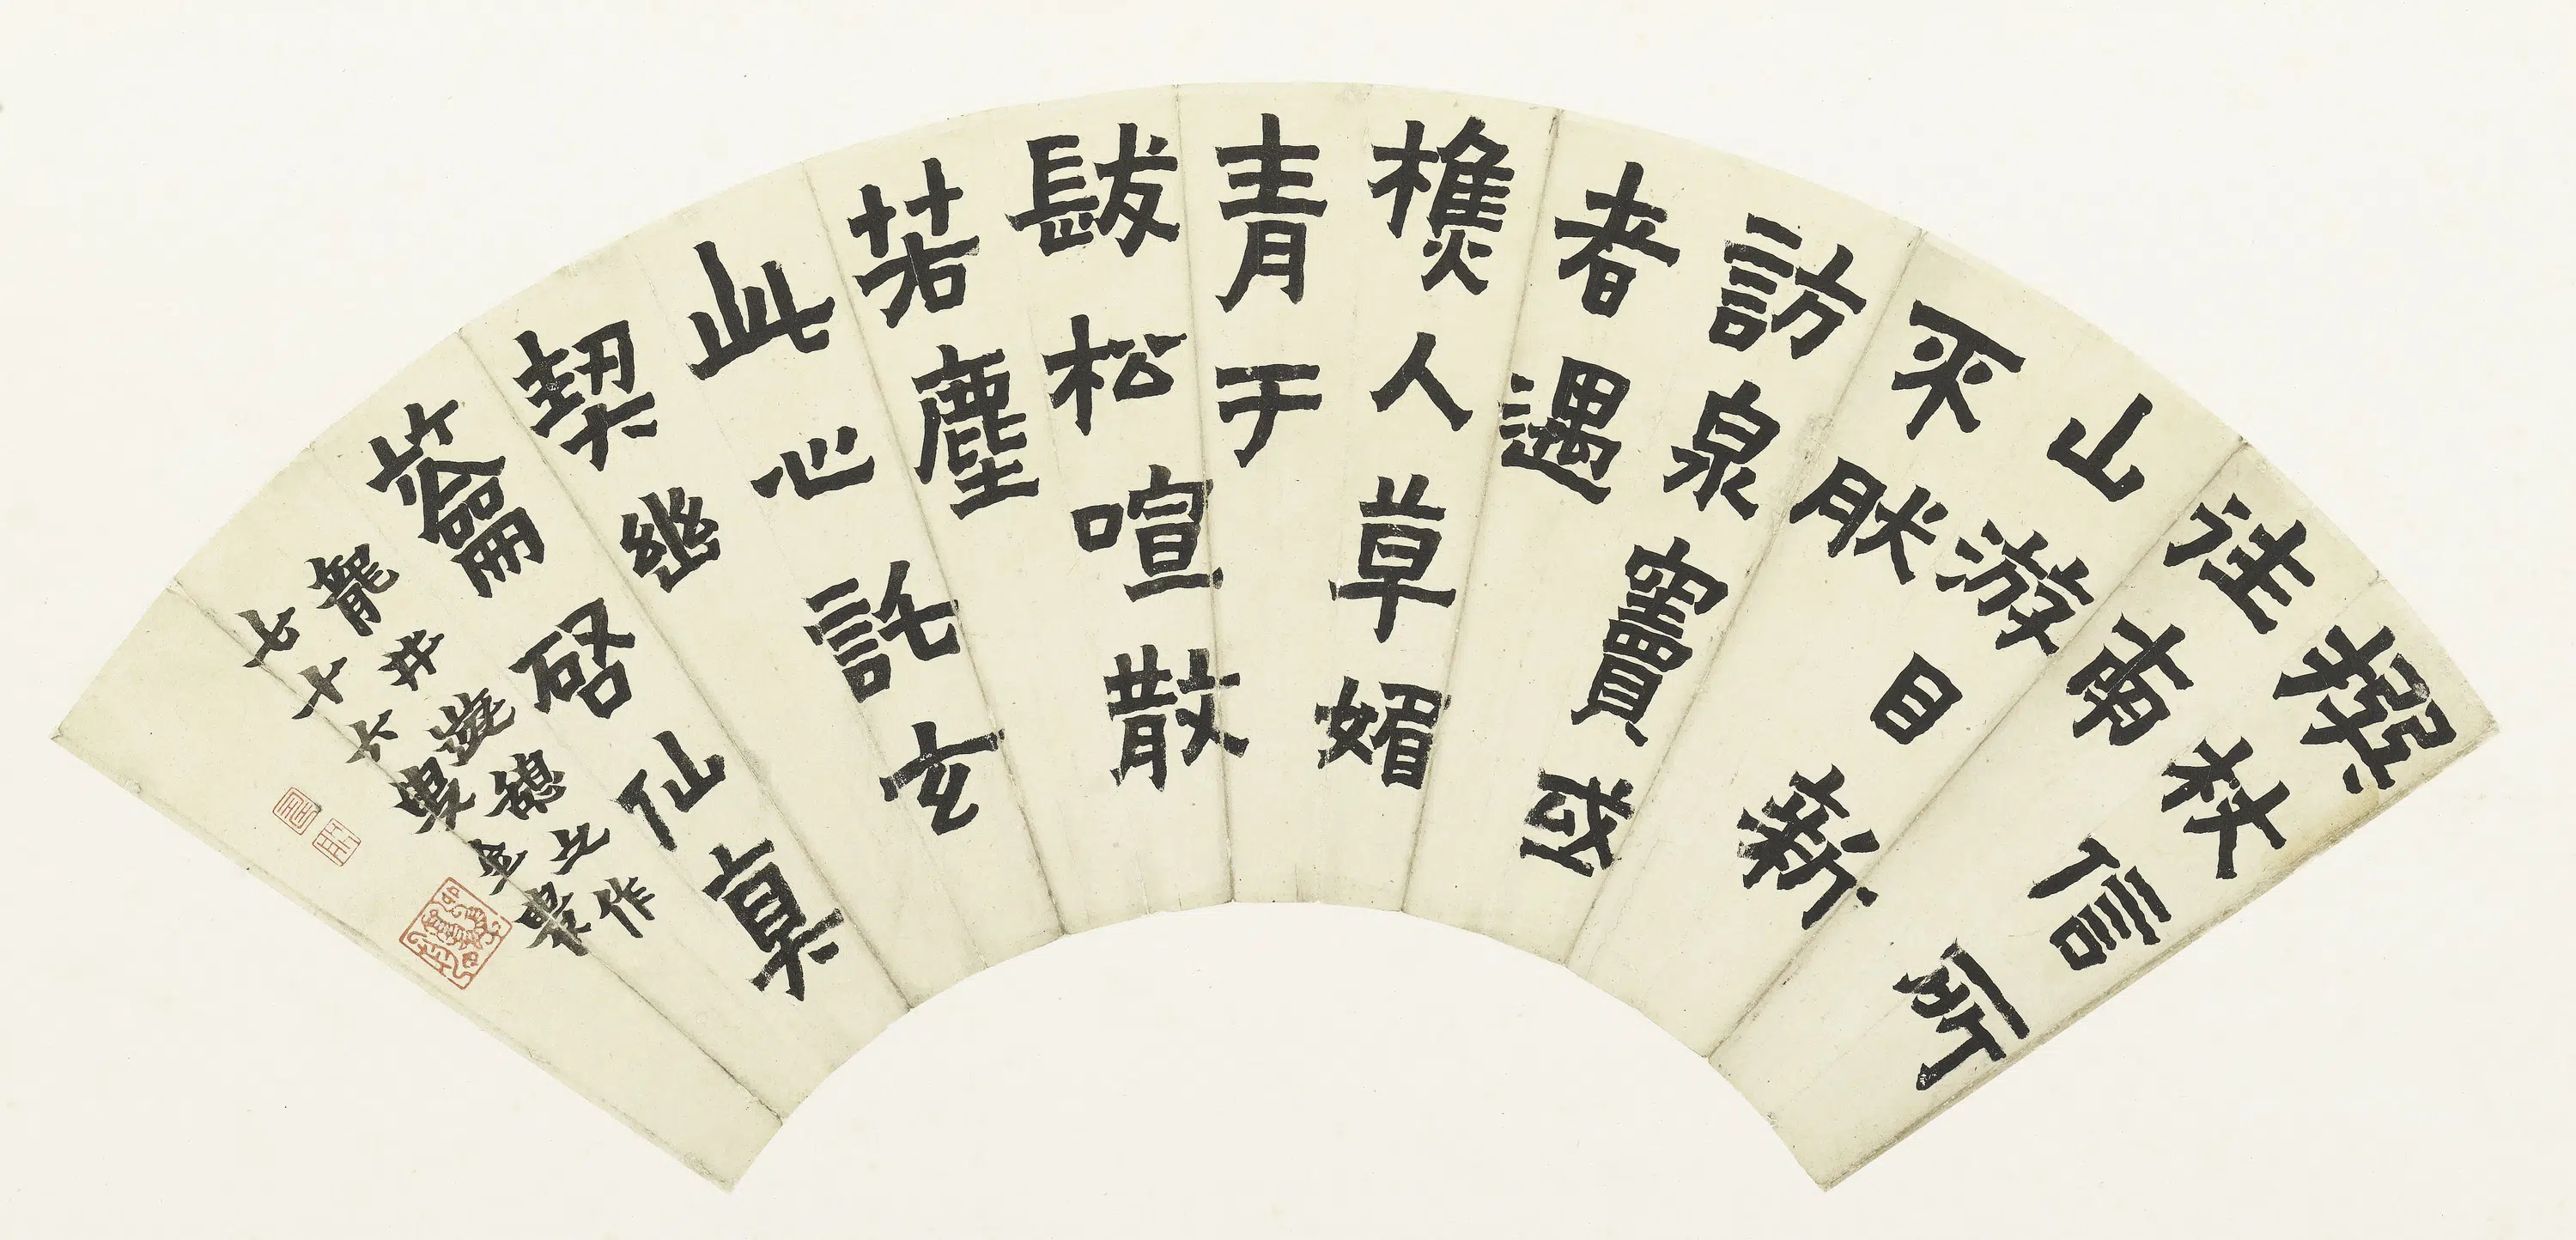 撰杖信所
往南
山游目新
肰
訪泉竇或
者遇
樵人草媚
青于
髮松喧散
若塵
此心託玄
契幽
蘥啓仙真
龍井遊憩之作
七十六叟金農